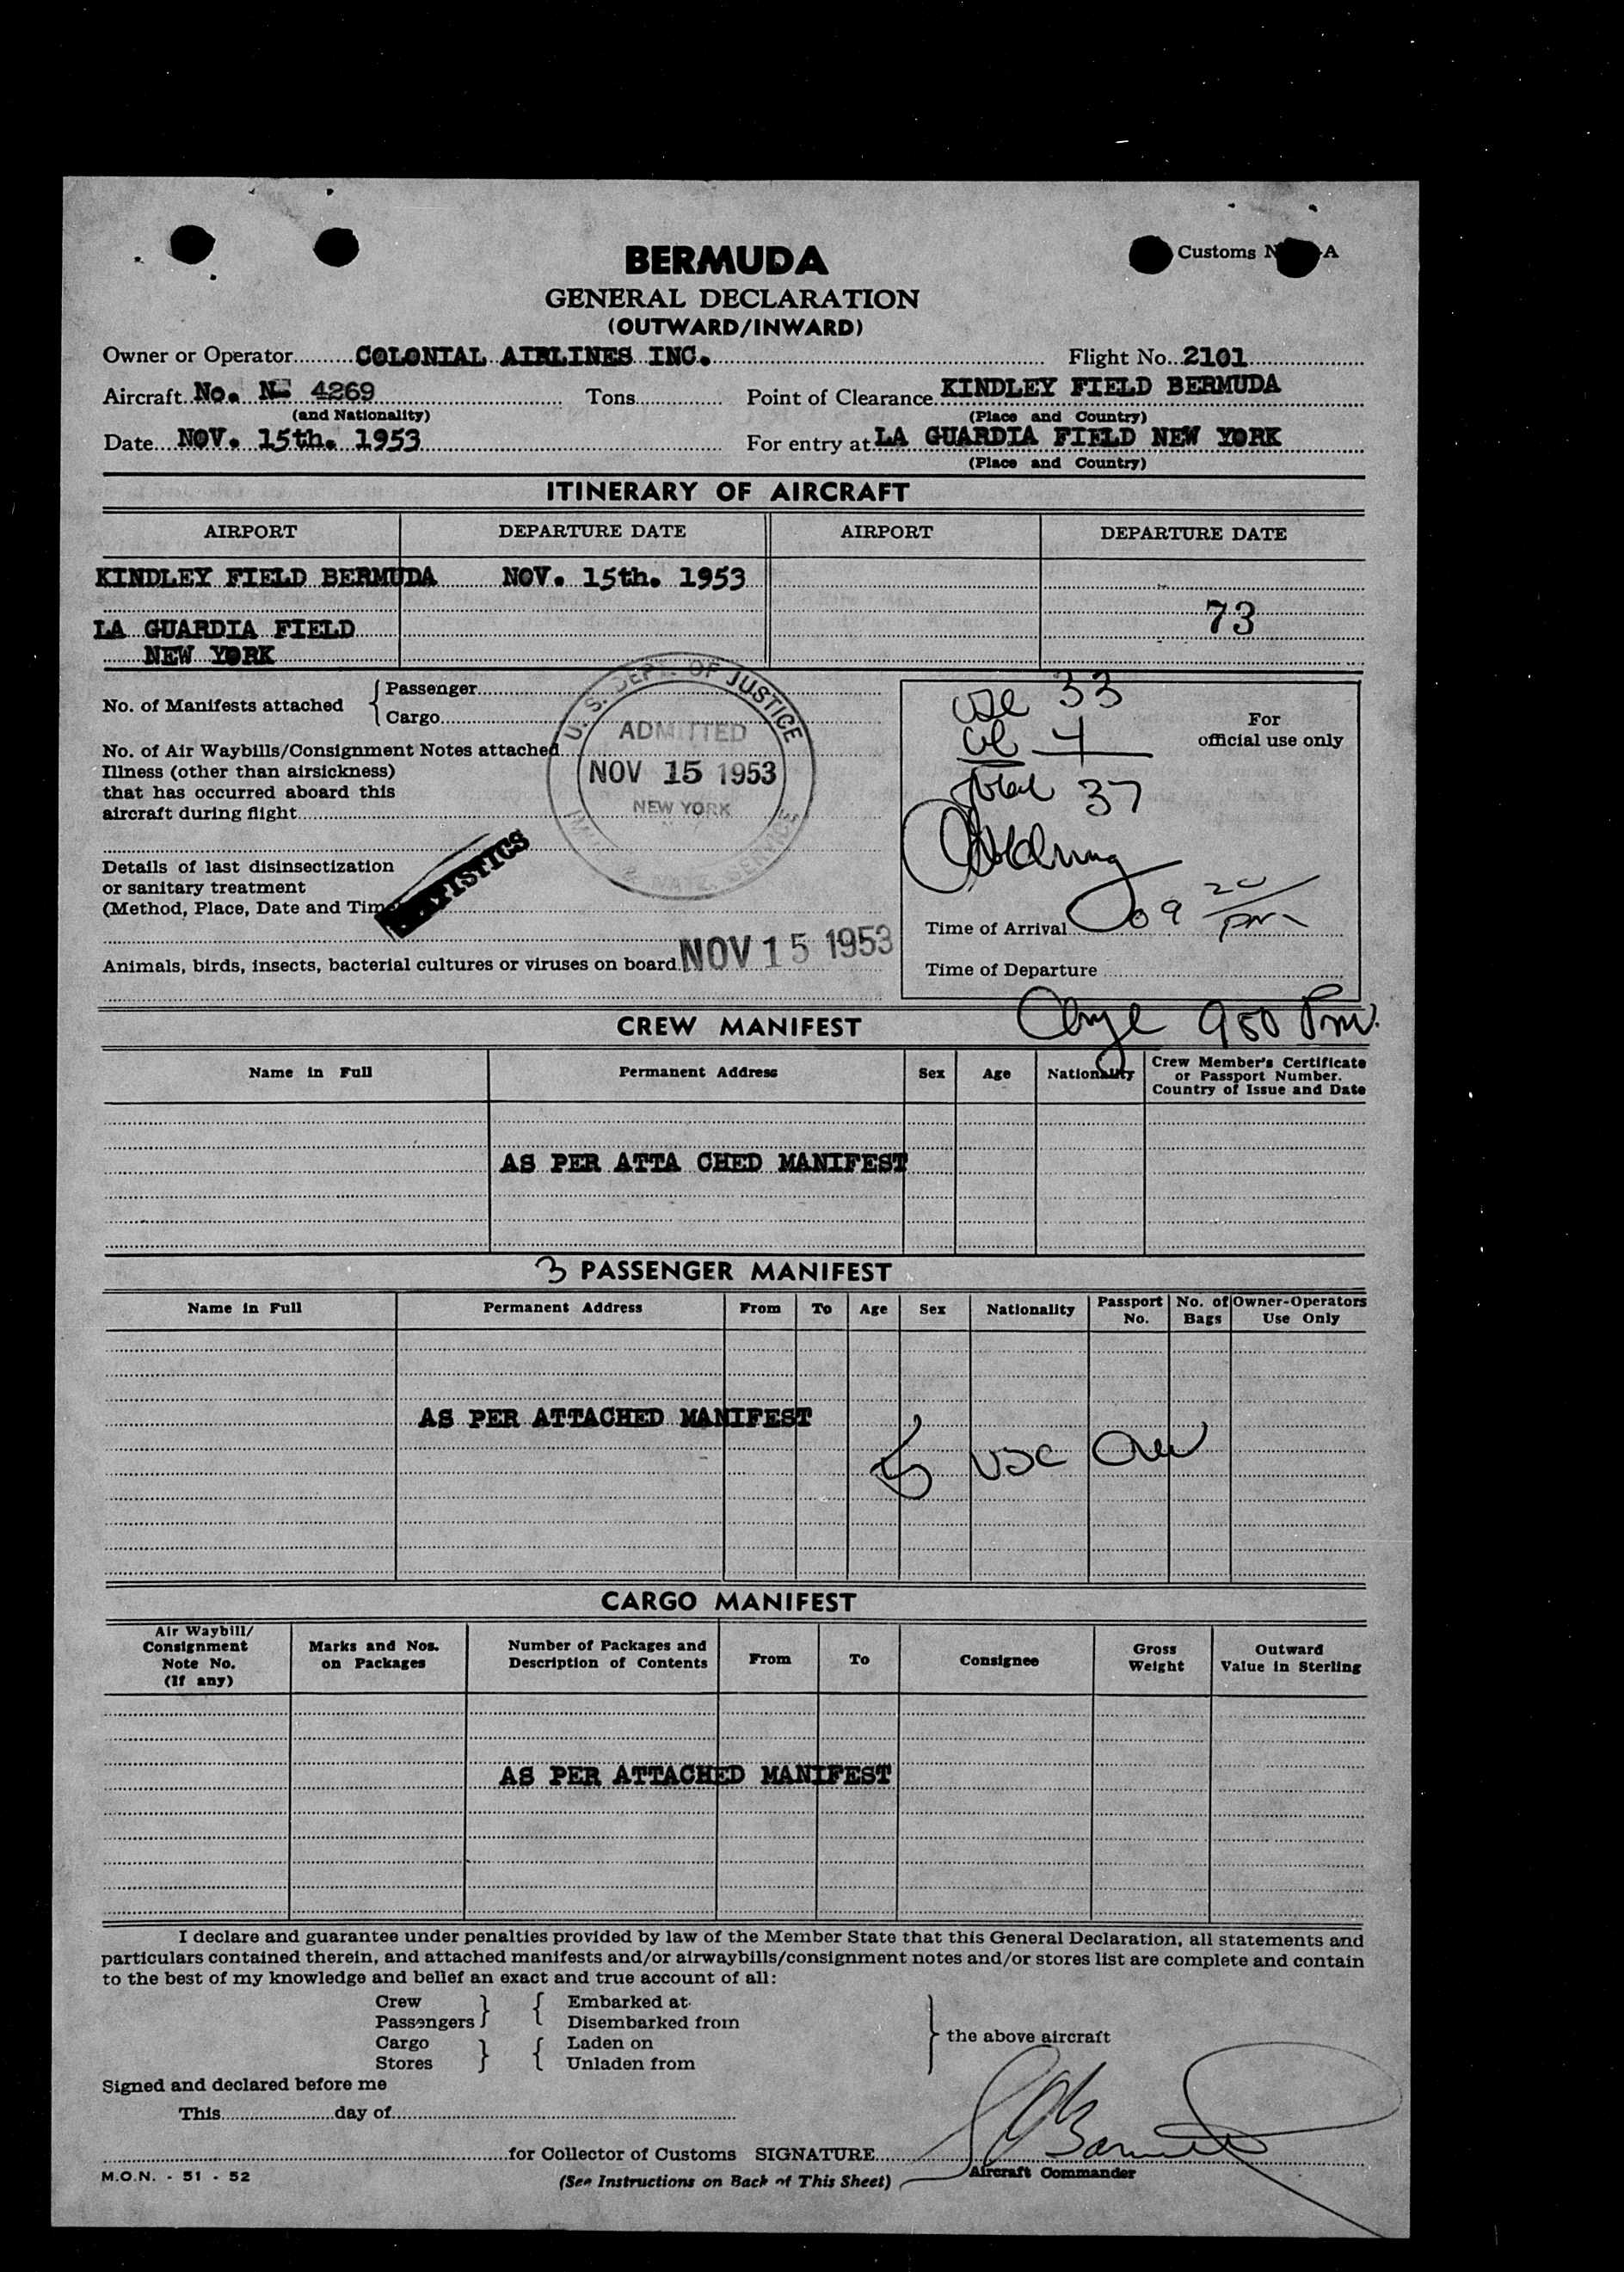 BERMUDA
Customs N A
GENERAL DECLARATION
(OUTWARD/INWARD)
Owner or Operator COLONIAL AIRLINES INC. Flight No. 2101
Aircraft No. N- 4269 Tons Point of Clearance KINDLEY FIELD BERMUDA
(and Nationality) (Place and Country)
Date NOV. 15th. 1953 For entry at LA GUARDIA FIELD NEW YORK
(Place and Country)
ITINERARY OF AIRCRAFT
AIRPORT DEPARTURE DATE AIRPORT DEPARTURE DATE
KINDLEY FIELD BERMUDA NOV. 15th. 1953
73
LA GUARDIA FIELD
NEW YORK
No. of Manifests attached { Passenger
Cargo
No. of Air Waybills/Consignment Notes attached
Illness (other than airsickness)
that has occurred aboard this
aircraft during flight
Details of last disinsectization
or sanitary treatment
(Method, Place, Date and Time
Animals, birds, insects, bacterial cultures or viruses on board
U. S. DEPT. OF JUSTICE
ADMITTED
NOV 15 1953
NEW YORK
IMM. & NATZ. SERVICE
STATISTICS
NOV 15 1953
For
official use only
usc 33
4
Total 37
Time of Arrival 09 20 pm
Time of Departure
950 Pm.
CREW MANIFEST
Name in Full Permanent Address Sex Age Nationality Crew Member's Certificate
or Passport Number.
Country of Issue and Date
AS PER ATTA CHED MANIFEST
3 PASSENGER MANIFEST
Name in Full Permanent Address From To Age Sex Nationality Passport No. No. of Bags Owner-Operators Use Only
AS PER ATTACHED MANIFEST
5 USC
CARGO MANIFEST
Air Waybill/
Consignment
Note No.
(If any)
Marks and Nos.
on Packages
Number of Packages and
Description of Contents
From To Consignee
Gross
Weight
Outward
Value in Sterling
AS PER ATTACHED MANIFEST
I declare and guarantee under penalties provided by law of the Member State that this General Declaration, all statements and
particulars contained therein, and attached manifests and/or airwaybills/consignment notes and/or stores list are complete and contain
to the best of my knowledge and belief an exact and true account of all:
Crew } { Embarked at
Passengers Disembarked from
Cargo } { Laden on
Stores Unladen from
} the above aircraft
Signed and declared before me
This day of
for Collector of Customs SIGNATURE
Aircraft Commander
M.O.N. - 51 - 52
(See Instructions on Back of This Sheet)